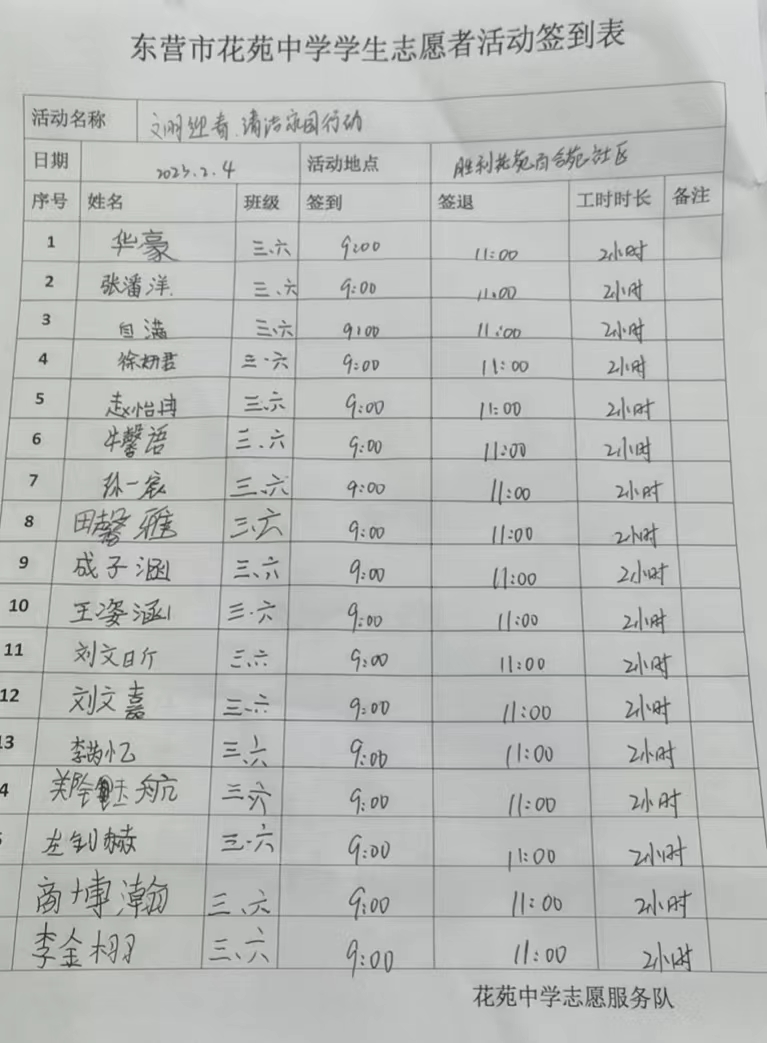 东营市花苑中学学生志愿者活动签到表
活动名称 文明迎春、清洁家园行动
日期 2023.2.4 活动地点 胜利花苑百合苑社区
序号 姓名 班级 签到 签退 工时时长 备注
1 华豪 三.六 9:00 11:00 2小时
2 张潘洋 三.六 9:00 11:00 2小时
3 三.六 9:00 11:00 2小时
4 徐妍君 三.六 9:00 11:00 2小时
5 赵怡冉 三.六 9:00 11:00 2小时
6 牛馨语 三.六 9:00 11:00 2小时
7 孙一宸 三.六 9:00 11:00 2小时
8 田馨雅 三.六 9:00 11:00 2小时
9 成子涵 三.六 9:00 11:00 2小时
10 王姿涵 三.六 9:00 11:00 2小时
11 刘文昕 三.六 9:00 11:00 2小时
12 刘文嘉 三.六 9:00 11:00 2小时
13 三.六 9:00 11:00 2小时
4 三.六 9:00 11:00 2小时
左钊赫 三.六 9:00 11:00 2小时
商博瀚 三.六 9:00 11:00 2小时
李金栩 三.六 9:00 11:00 2小时
花苑中学志愿服务队